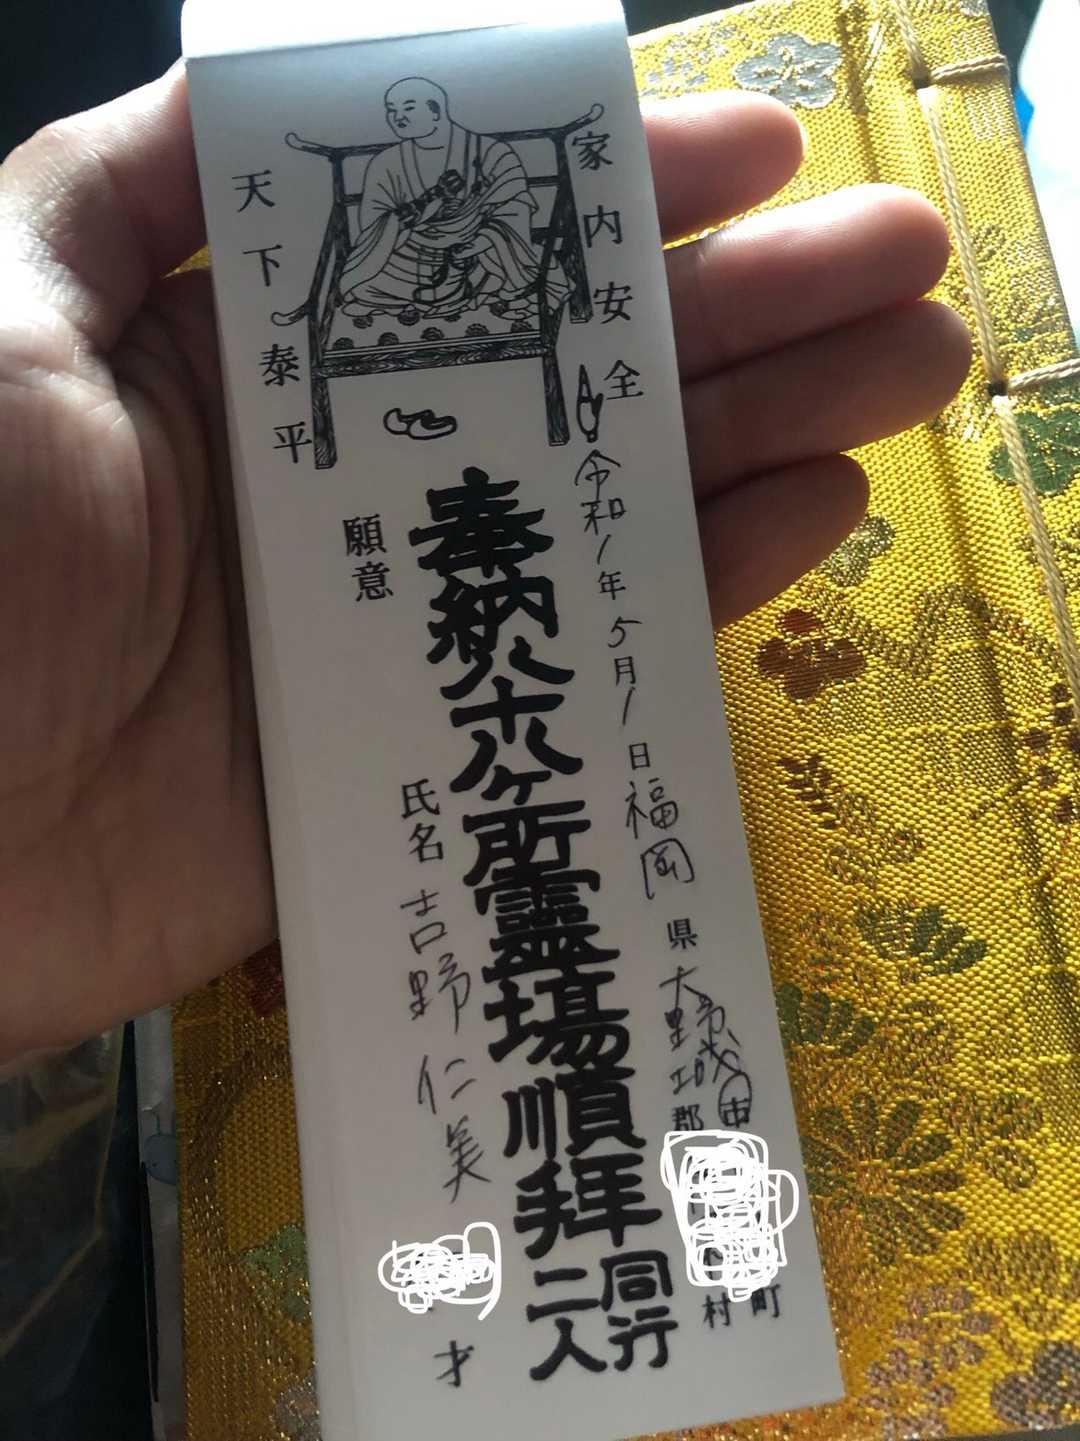 家内安全
令和1年5月1日福岡県大野城市郡
町
村
奉納八十八ヶ所霊場順拝
同行
二人
天下泰平
願意
氏名 吉野仁美
才